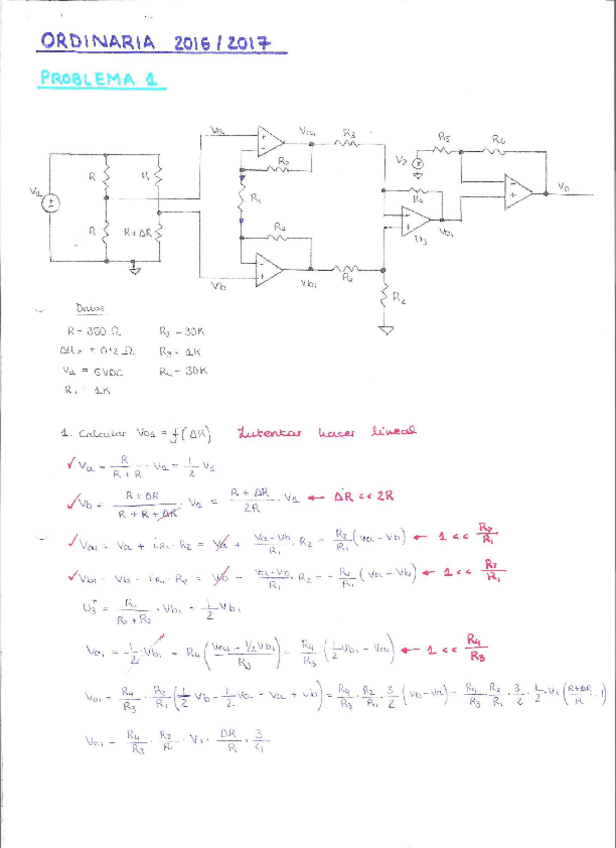 ORDINARIA 2016/2017
PROBLEMA 1
Va Va1 R3 V2 R5 R6
R R R2
V1 R1 R4 V0
R R+ΔR R2 U3 V01
Vb Vb1 R2
R2
Datos
R = 350 Ω R2 = 30K
R3 = 1K
V1 = 6VDC R4 = 30K
R1 = 1K
1. Calcular V01 = f(ΔR) Intentar hacer lineal
✓ Va = R/(R+R) · V1 = 1/2 V1
✓ Vb = (R+ΔR)/(R+R+ΔR) · V1 = (R+ΔR)/2R · V1 ← ΔR << 2R
✓ Va1 = Va + iR1 · R2 = Va + (Va-Vb)/R1 · R2 = R2/R1 (Va-Vb) ← 1 << R2/R1
✓ Vb1 = Vb - iR1 · R2 = Vb - (Va-Vb)/R1 · R2 = - R2/R1 (Va-Vb) ← 1 << R2/R1
U3+ = R2/(R2+R2) · Vb1 = 1/2 Vb1
V01 = 1/2 Vb1 - R4 ((Va1 - 1/2 Vb1)/R3) = R4/R3 (1/2 Vb1 - Va1) ← 1 << R4/R3
V01 = R4/R3 · R2/R1 (1/2 Vb - 1/2 Va - Va + Vb) = R4/R3 · R2/R1 · 3/2 (Vb-Va) = R4/R3 · R2/R1 · 3/2 · 1/2 · V1 ((R+ΔR)/R - 1)
V01 = R4/R3 · R2/R1 · V1 · ΔR/R · 3/4